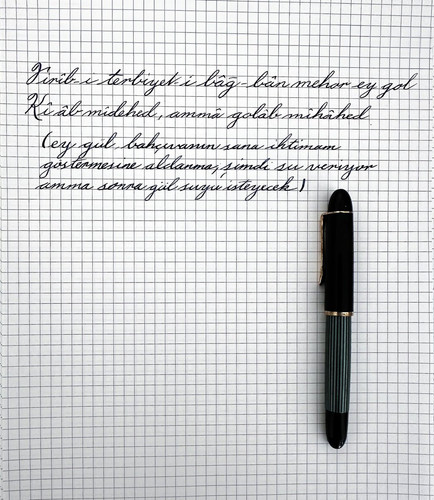 Firîb-i terbiyet-i bâğ-bân mehor ey gol
Ki âb midehed, ammâ golâb mihâhed
(ey gül bahçıvanın sana ihtimam
göstermesine aldanma, şimdi su veriyor
amma sonra gül suyu isteyecek)